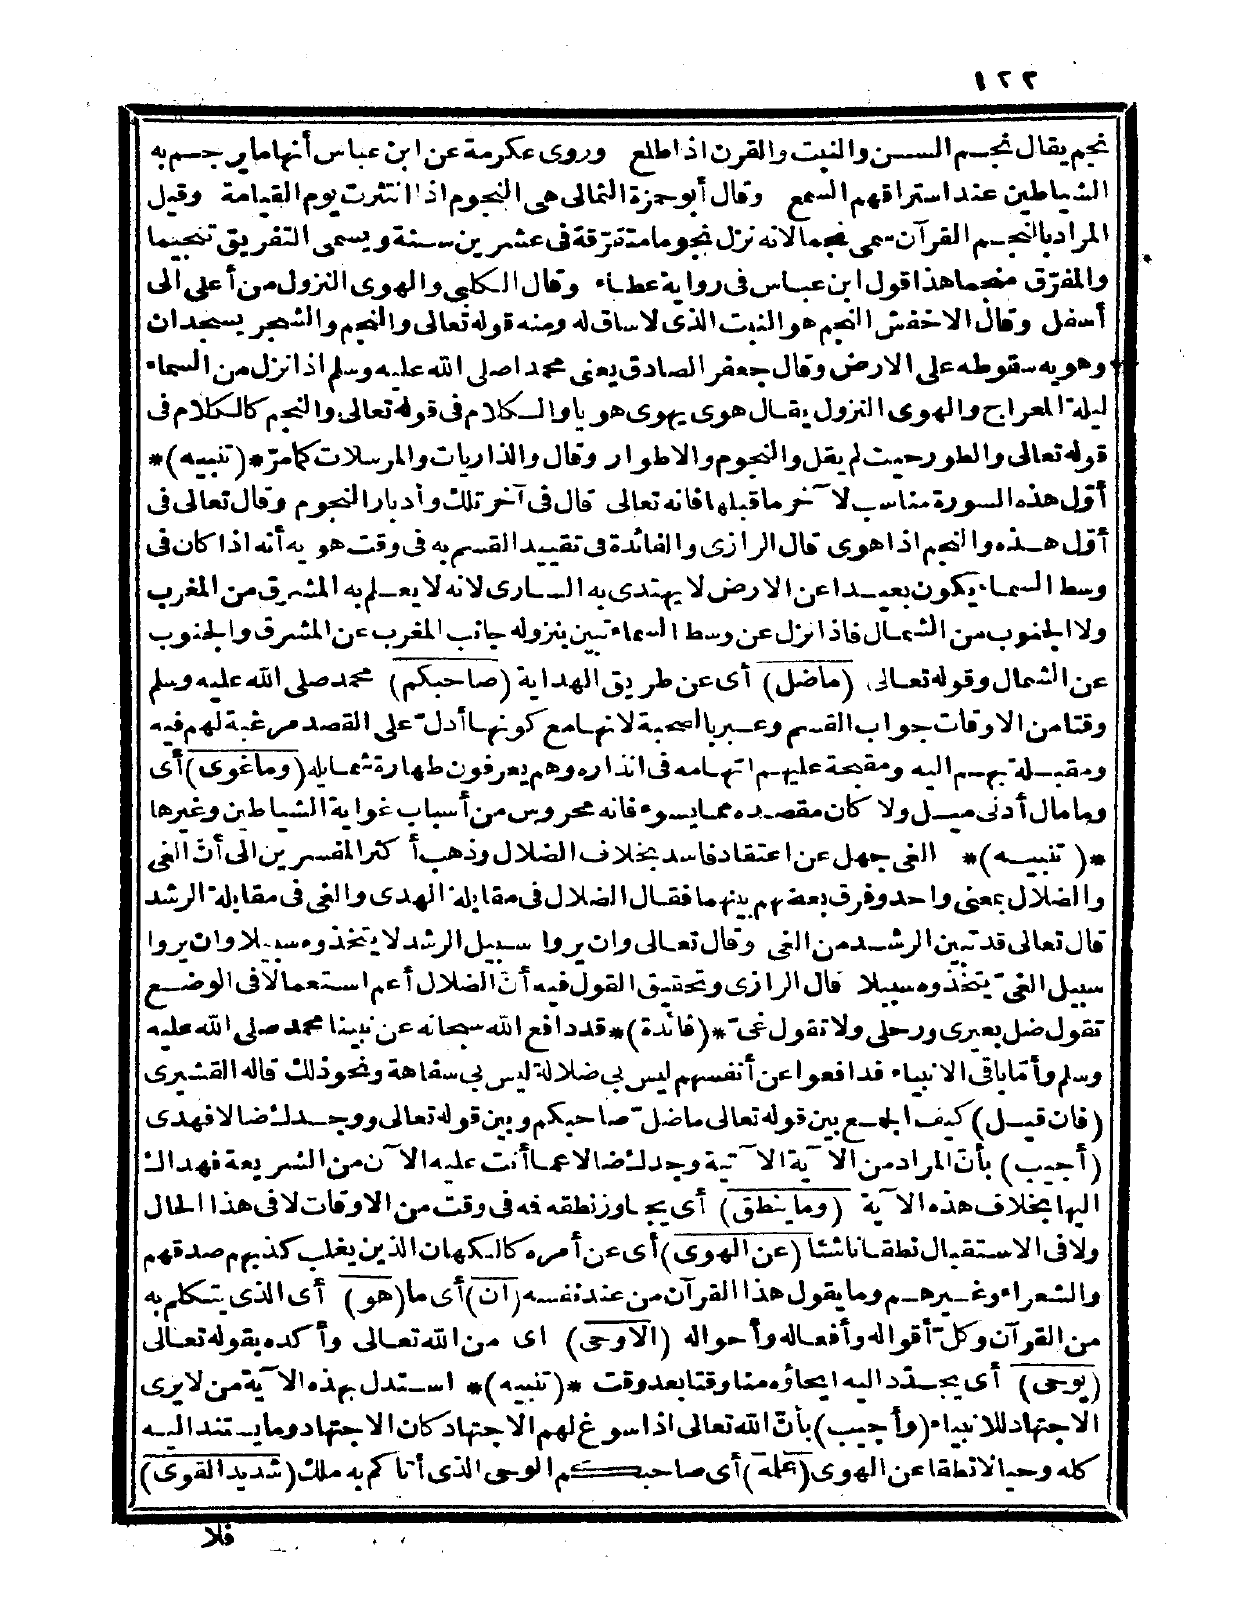 ١٢٢
نجم يقال نجم السن والنبت والقرن اذا طلع وروى عكرمة عن ابن عباس أنها ما يرجم به
الشياطين عند استراقهم السمع وقال أبو حمزة الثمالى هى النجوم اذا انتثرت يوم القيامة وقيل
المراد بالنجم القرآن سمى نجما لانه نزل نجوما متفرّقة فى عشرين سنة ويسمى التفريق تنجيما
والمفرّق منجما هذا قول ابن عباس فى رواية عطاء وقال الكلبى والهوى النزول من أعلى الى
أسفل وقال الاخفش النجم هو النبت الذى لا ساق له ومنه قوله تعالى والنجم والشجر يسجدان
وهويه سقوطه على الارض وقال جعفر الصادق يعنى محمدا صلى الله عليه وسلم اذا نزل من السماء
ليلة المعراج والهوى النزول يقال هوى يهوى هويا والكلام فى قوله تعالى والنجم كالكلام فى
قوله تعالى والطور حيث لم يقل والنجوم والاطوار وقال والذاريات والمرسلات كما مرّ *(تنبيه)*
أوّل هذه السورة مناسب لآخر ما قبلها فانه تعالى قال فى آخر تلك وأدبار النجوم وقال تعالى فى
أوّل هذه والنجم اذا هوى قال الرازى والفائدة فى تقييد القسم به فى وقت هويه أنه اذا كان فى
وسط السماء يكون بعيدا عن الارض لا يهتدى به السارى لانه لا يعلم به المشرق من المغرب
ولا الجنوب من الشمال فاذا نزل عن وسط السماء تبين بنزوله جانب المغرب عن المشرق والجنوب
عن الشمال وقوله تعالى (ماضل) أى عن طريق الهداية (صاحبكم) محمد صلى الله عليه وسلم
وقتا من الاوقات جواب القسم وعبر بالصحبة لانها مع كونها أدلّ على القصد مرغبة لهم فيه
ومقبلة بهم اليه ومقبحة عليهم اتهامه فى انذاره وهم يعرفون طهارة شمايله (وما غوى) أى
وما مال أدنى ميل ولا كان مقصده مما يسوء فانه محروس من أسباب غواية الشياطين وغيرها
*(تنبيه)* الغى جهل عن اعتقاد فاسد بخلاف الضلال وذهب أكثر المفسرين الى أنّ الغى
والضلال بمعنى واحد وفرق بعضهم بينهما فقال الضلال فى مقابلة الهدى والغى فى مقابلة الرشد
قال تعالى قد تبين الرشد من الغى وقال تعالى وان يروا سبيل الرشد لا يتخذوه سبيلا وان يروا
سبيل الغىّ يتخذوه سبيلا قال الرازى وتحقيق القول فيه أنّ الضلال أعم استعمالا فى الوضع
تقول ضل بعيرى ورحلى ولا تقول غىّ *(فائدة)* قد دافع الله سبحانه عن نبينا محمد صلى الله عليه
وسلم وأمّا باقى الانبياء فدافعوا عن أنفسهم ليس بى ضلالة ليس بى سفاهة ونحو ذلك قاله القشيرى
(فان قيل) كيف الجمع بين قوله تعالى ما ضلّ صاحبكم وبين قوله تعالى ووجدك ضالا فهدى
(أجيب) بأنّ المراد من الآية الآتية وجدك ضالا عما أنت عليه الآن من الشريعة فهداك
اليها بخلاف هذه الآية (وما ينطق) أى يجاوز نطقه فه فى وقت من الاوقات لا فى هذا الحال
ولا فى الاستقبال نطقا ناشئا (عن الهوى) أى عن أمره كالكهان الذين يغلب كذبهم صدقهم
والشعراء وغيرهم وما يقول هذا القرآن من عند نفسه (ان) أى ما (هو) أى الذى يتكلم به
من القرآن وكلّ أقواله وأفعاله وأحواله (الاوحى) اى من الله تعالى وأكده بقوله تعالى
(يوحى) أى يجدّد اليه ايحاؤه منا وقتا بعد وقت *(تنبيه)* استدل بهذه الآية من لا يرى
الاجتهاد للانبياء (وأجيب) بأنّ الله تعالى اذا سوغ لهم الاجتهاد كان الاجتهاد وما يستند اليه
كله وحيا لا نطقا عن الهوى (علمه) أى صاحبكم الوحى الذى أتاكم به ملك (شديد القوى)
فلا